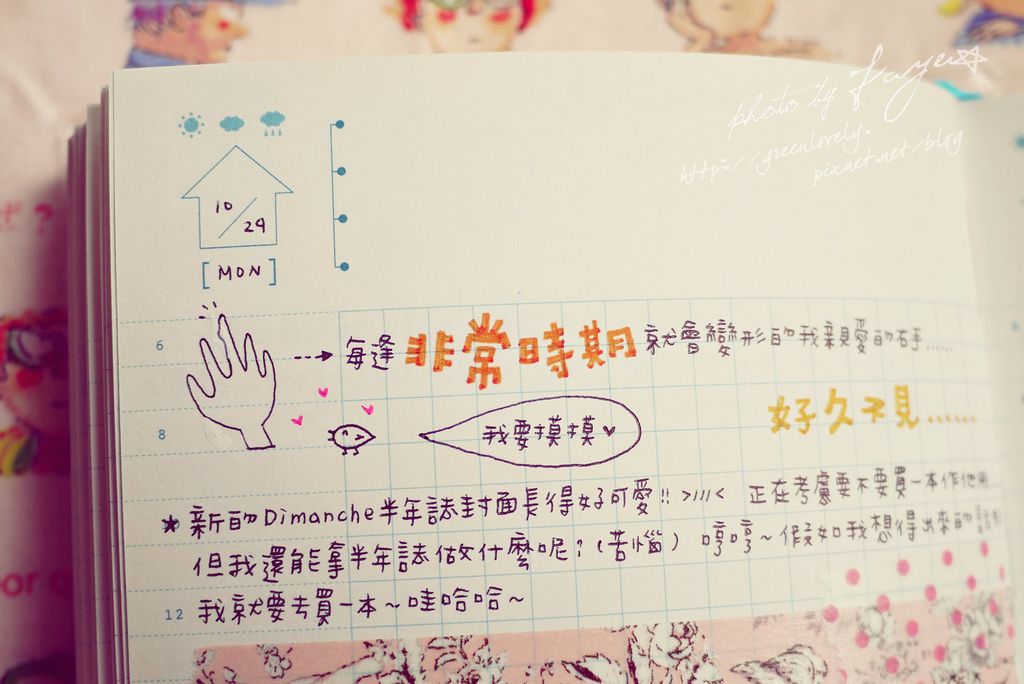 photo by Faye
http://greenlovely.
pixnet.net/blog
10/24
[MON]
6
每逢 非常時期 就會變形的我親愛的右手......
8
我要摸摸♥
好久不見......
★新的Dimanche半年誌封面長得好可愛!! >///< 正在考慮要不要買一本作他用..
但我還能拿半年誌做什麼呢?(苦惱) 哼哼~假如我想得出來的話
12 我就要去買一本~哇哈哈~